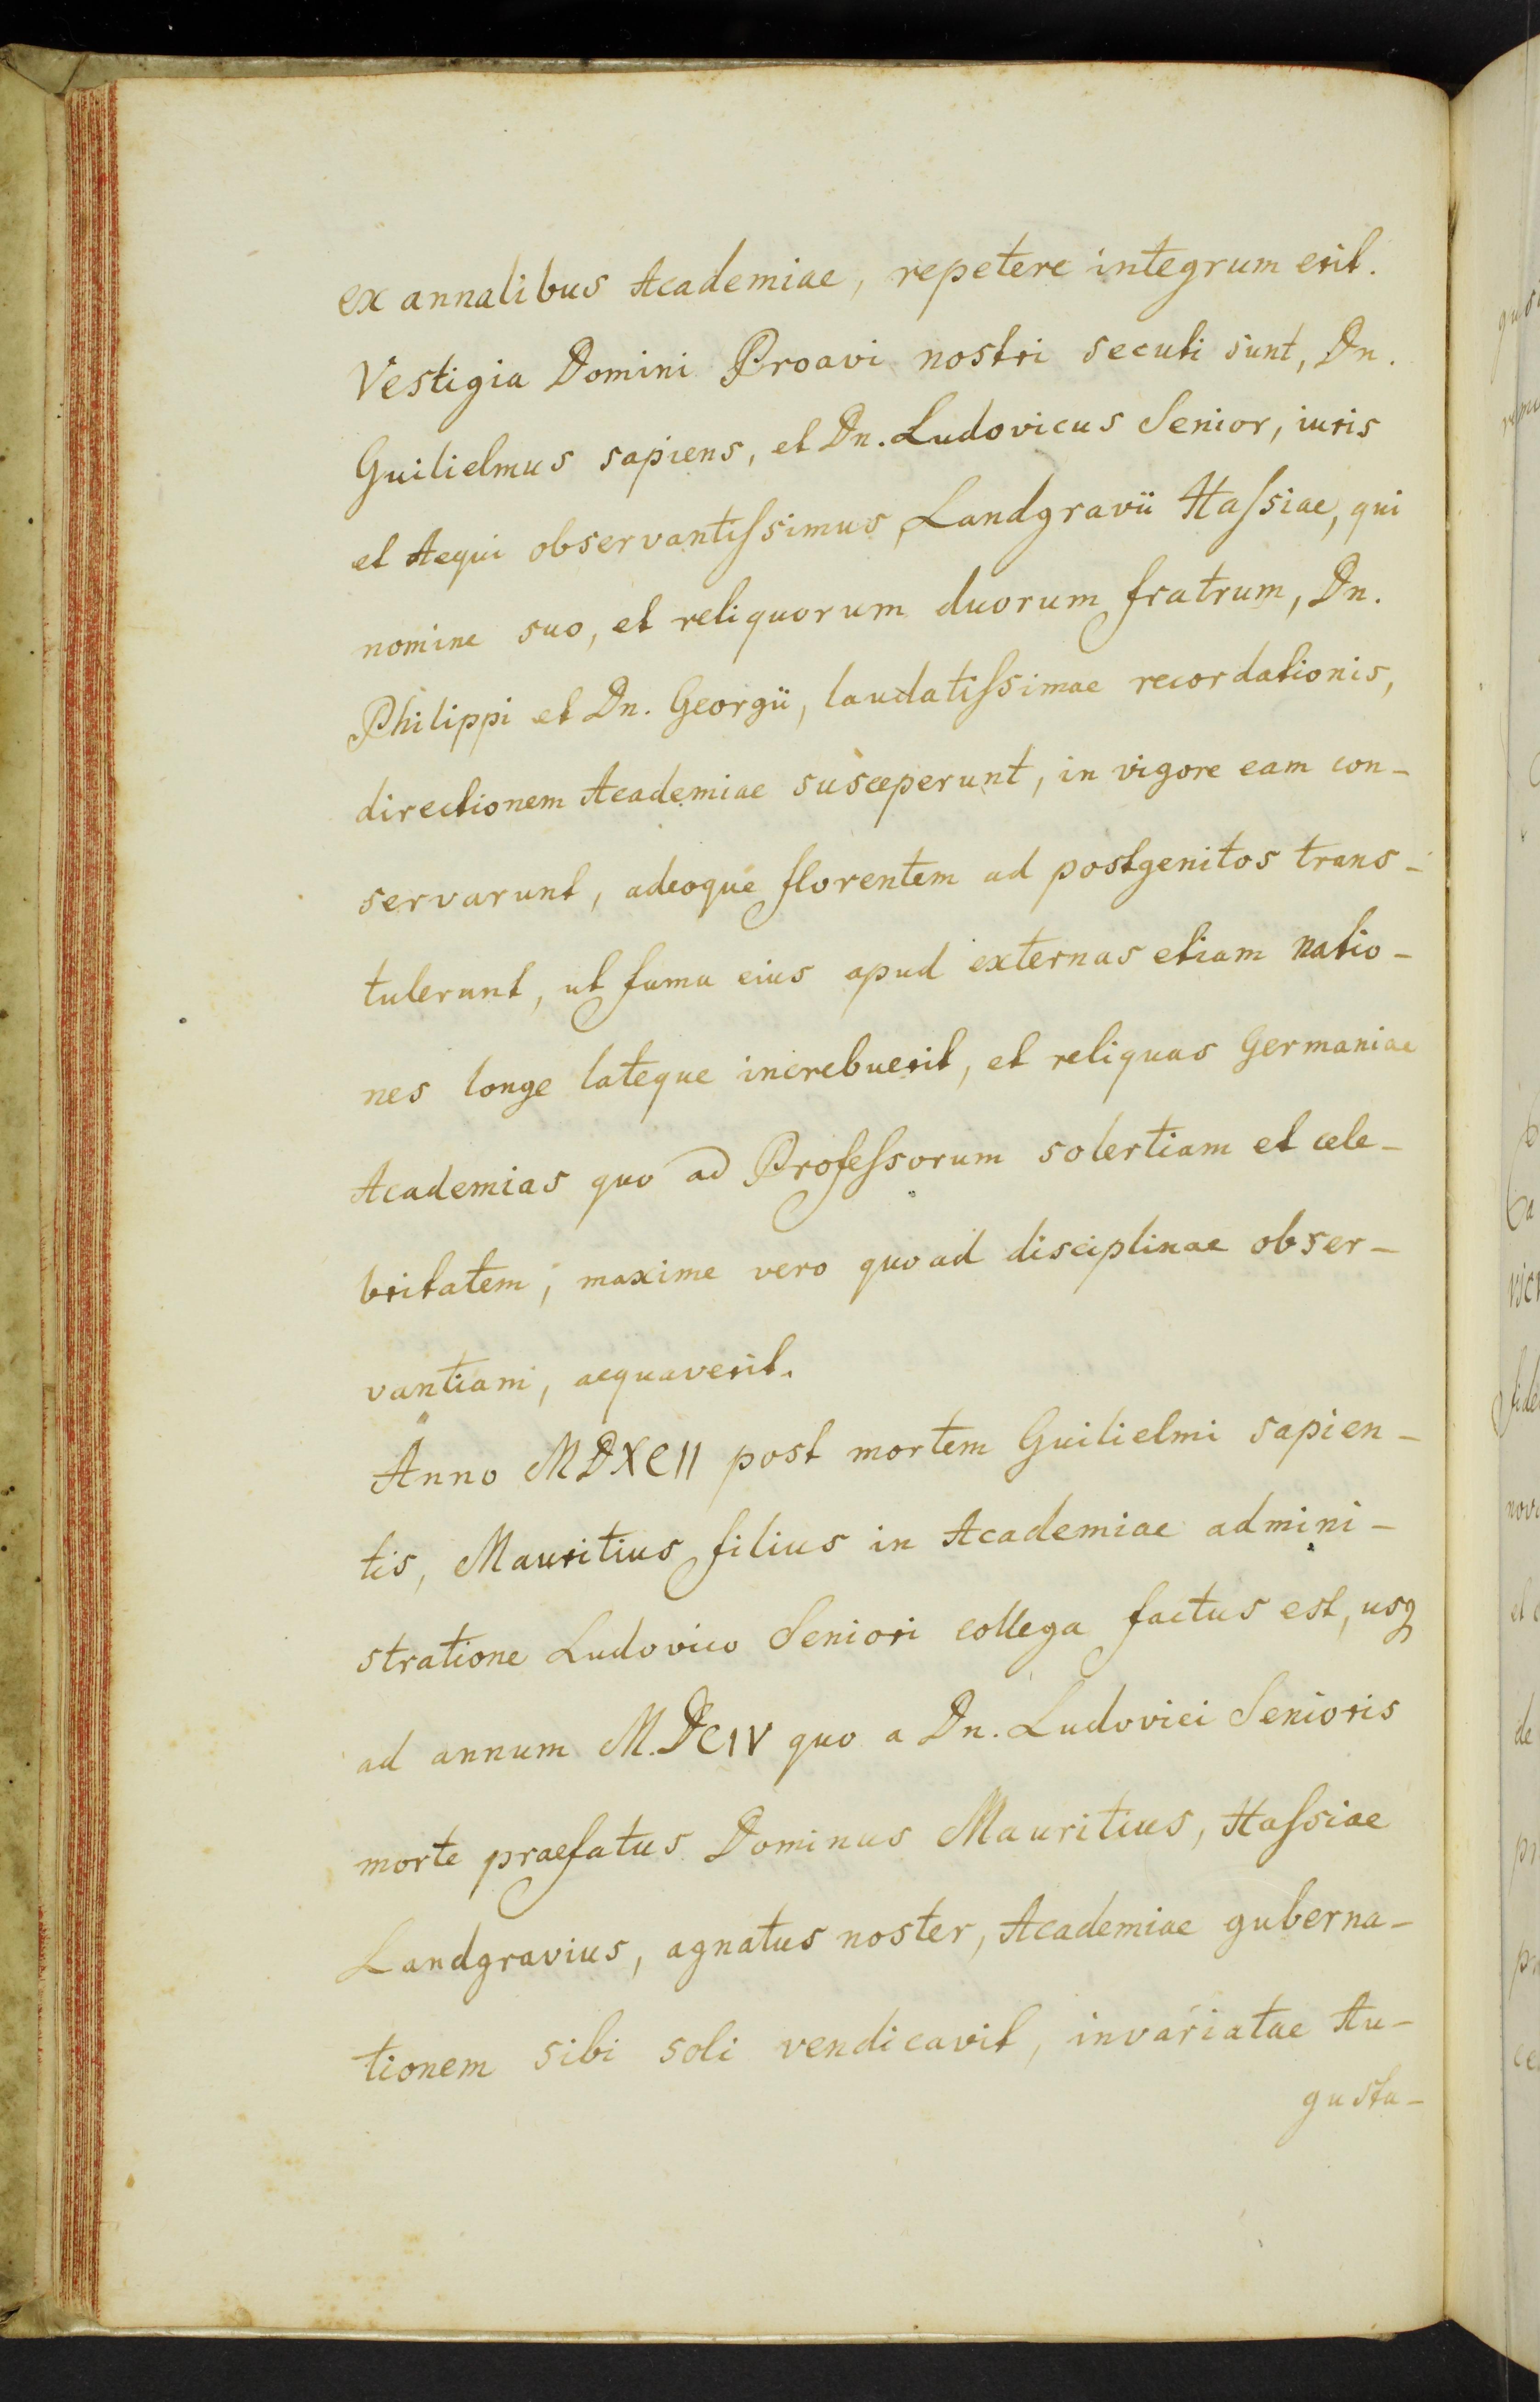 ex annalibus Academiae, repetere integrum erit.
Vestigia Domini Proavi nostri secuti sunt, Dn.
Guilielmus sapiens, et Dn. Ludovicus Senior, iuris
et Aequi observantiſsimus Landgravii Haſsiae, qui
nomine suo, et reliquorum duorum fratrum, Dn.
Philippi et Dn. Georgii, laudatiſsimae recordationis,
directionem Academiae susceperunt, in vigore eam con-
servarunt, adeoque florentem ad postgenitos trans-
tulerunt, ut fama eius apud externas etiam natio-
nes longe lateque increbuerit, et reliquas Germaniae
Academias quo ad Profeſsorum solertiam et cele-
britatem, maxime vero quoad disciplinae obser-
vantiam, aequaverit.
Anno MDXCII post mortem Guilielmi sapien-
tis, Mauritius filius in Academiae admini-
stratione Ludovico Seniori collega factus est, usq
ad annum M.DCIV quo a Dn. Ludovici Senioris
morte praefatus Dominus Mauritius, Haſsiae
Landgravius, agnatus noster, Academiae guberna-
tionem sibi soli vendicavit, invariatae Au-
gusta-